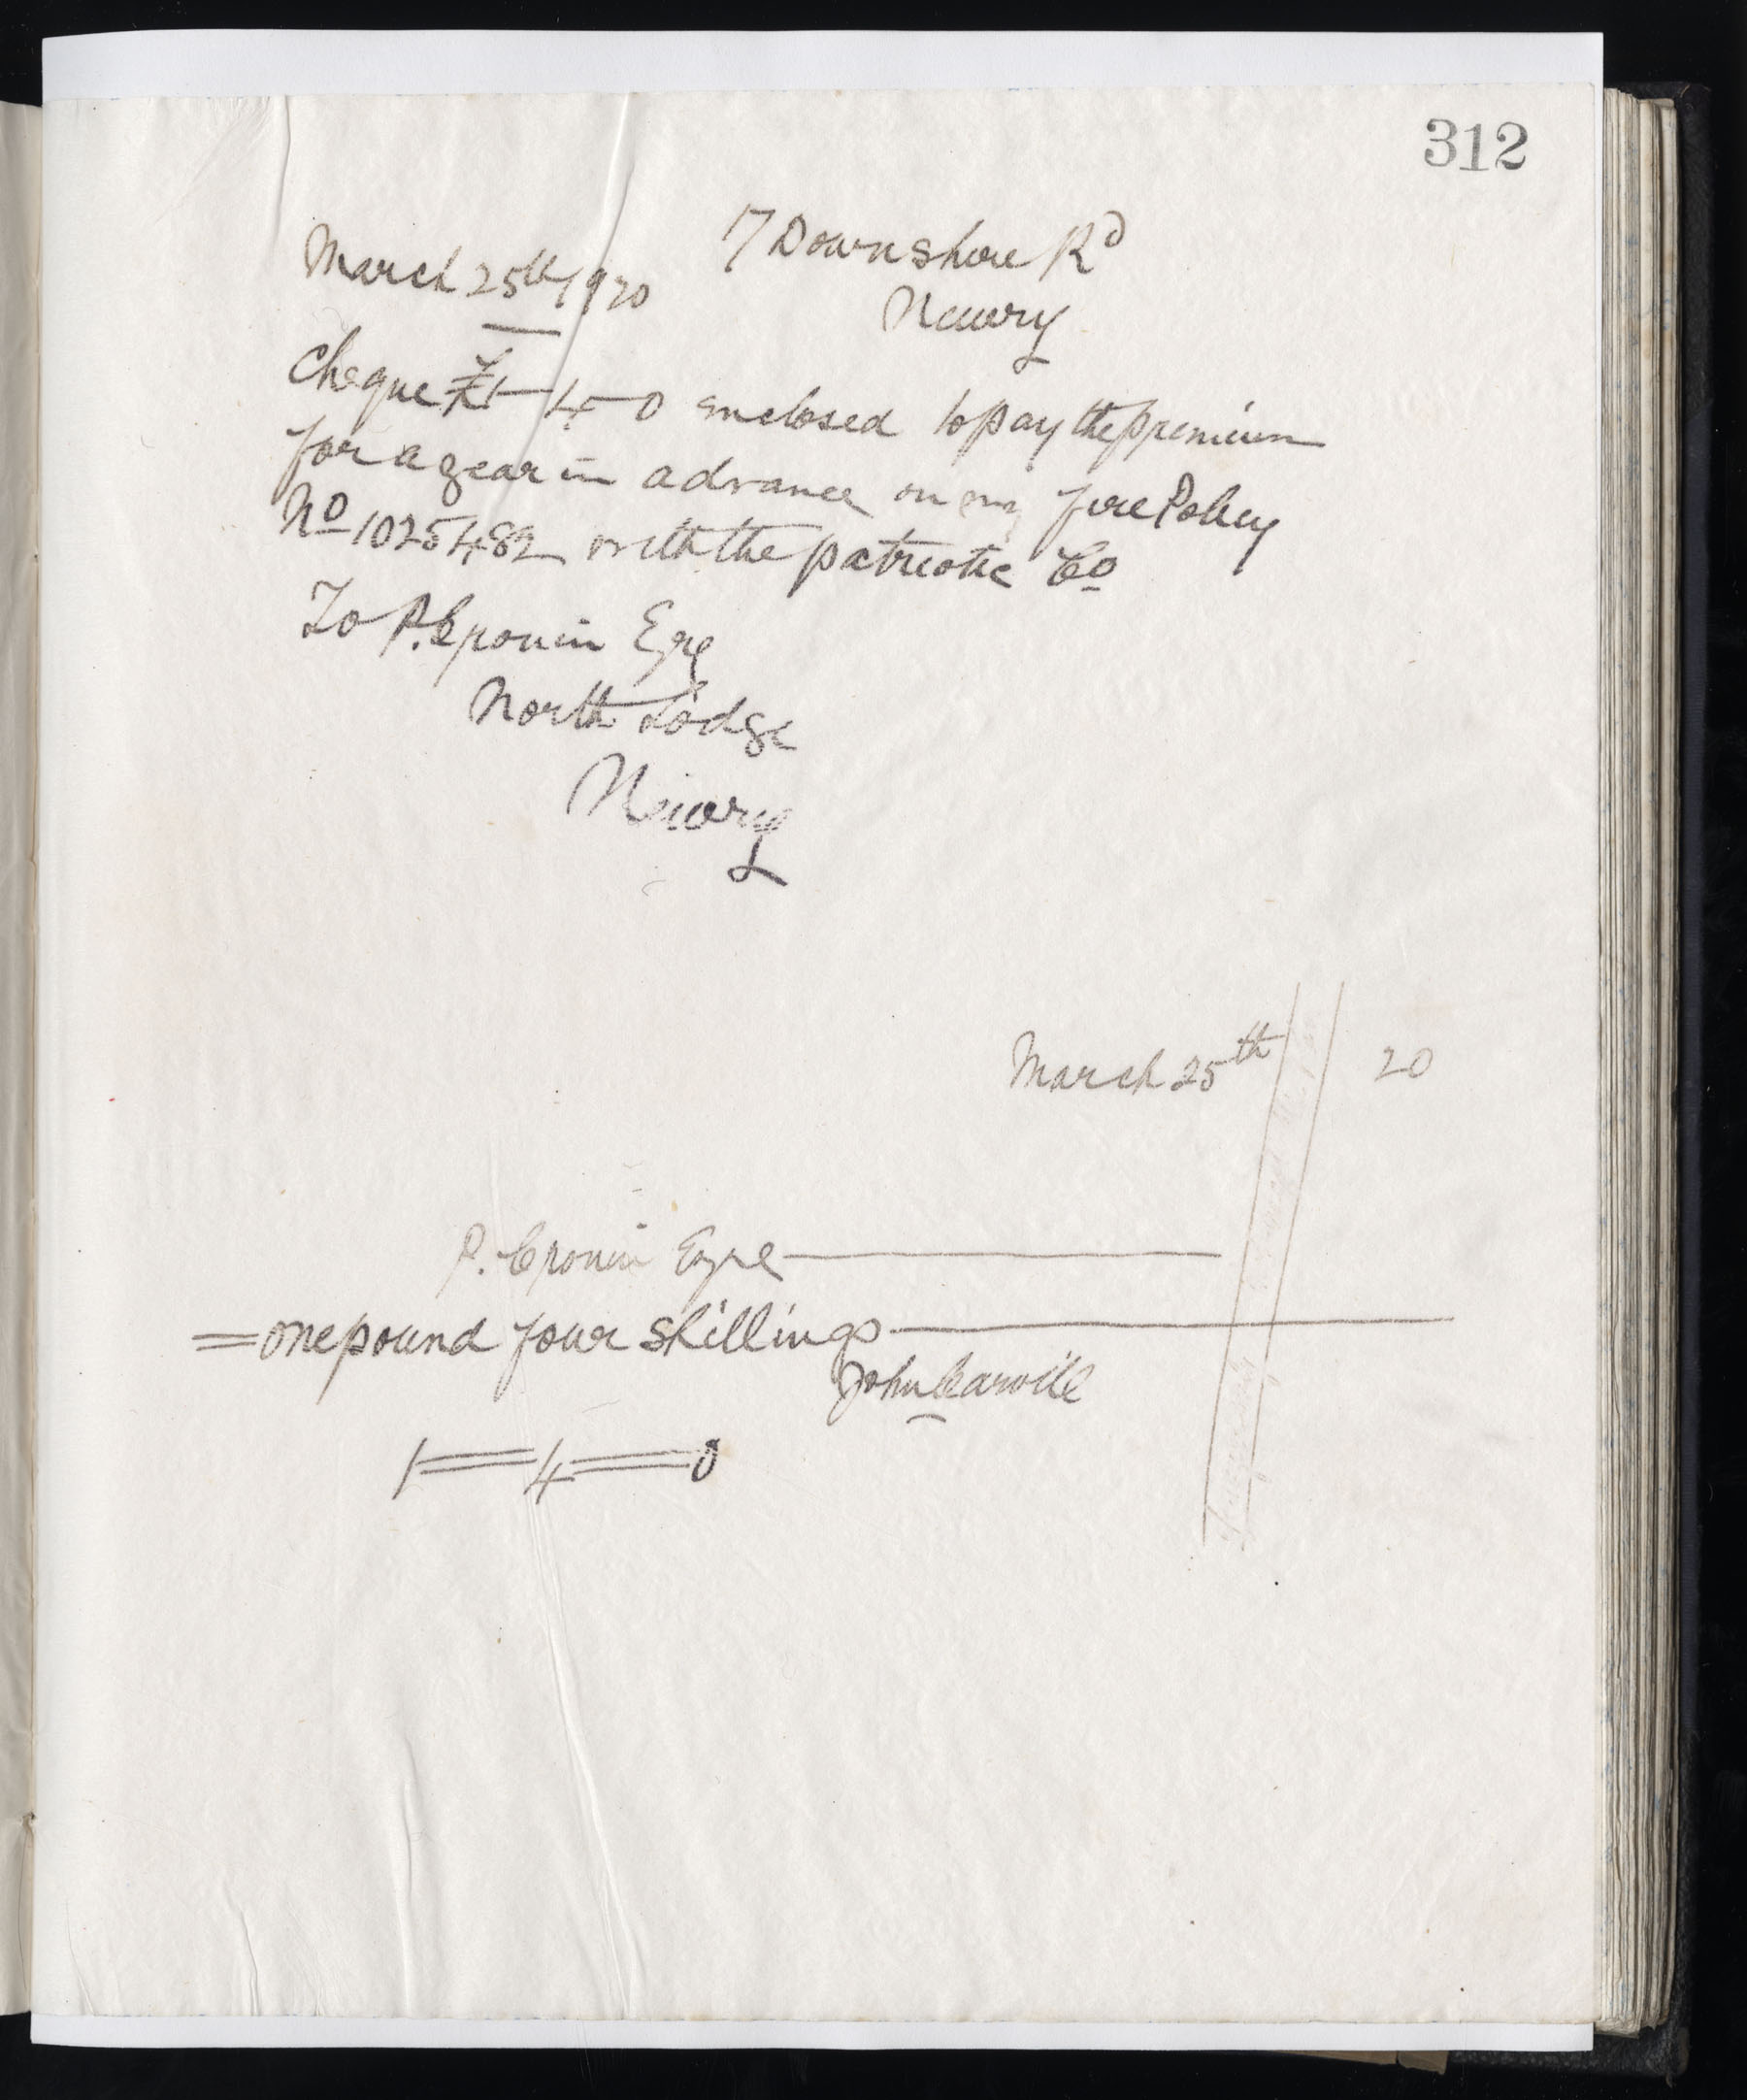 312
17 Downshire Rd
March 25th 1920
Newry
Cheque £1-4-0 enclosed to pay the premium
for a year in advance on my fire Policy
No 1025482 with the patriotic Co
To P. Cronin Eqre
North Lodge
Newry
March 25th 20
P. Cronin Eqre
= one pound four shillings
John Carvill
1=4=0